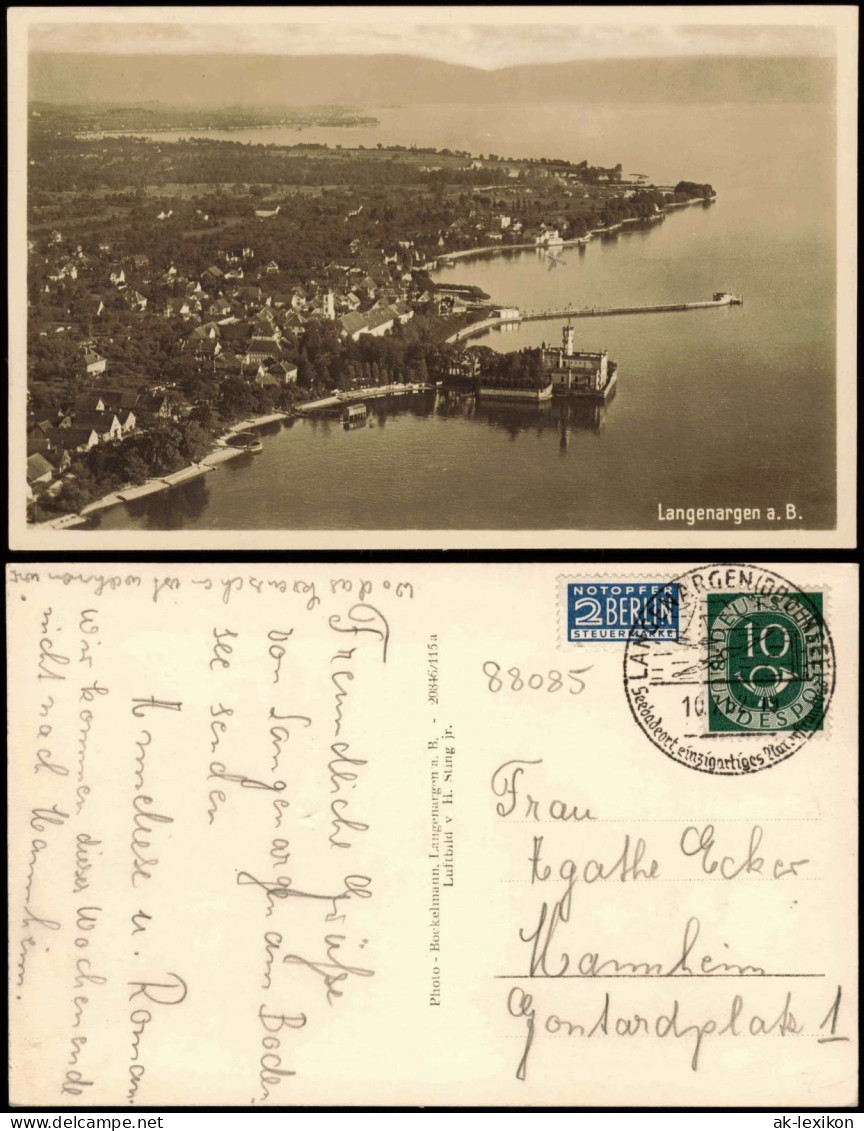 Langenargen a. B.
wo das
Freundliche Grüße
von Langenargen am Boden
see senden
Anneliese u. Roman.
wir kommen dieses Wochenende
nicht nach Mannheim.
Photo - Bockelmann, Langenargen a. B. - 20846/115a
Luftbild v H. Sting jr.
NOTOPFER
2 BERLIN
STEUERMARKE
LANGENARGEN (BODENSEE)
Seebadeort, einzigartiges
DEUTSCHE
10
BUNDESPOST
88085
Frau
Agathe Ecker
Mannheim
Gontardplatz 1
www.ansichtskarten-lexikon.de
ak-lexikon